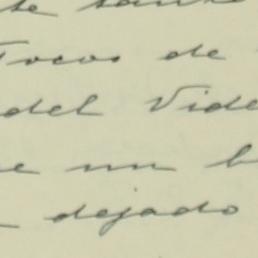 Tocos de
del Vide
e un b
dejado